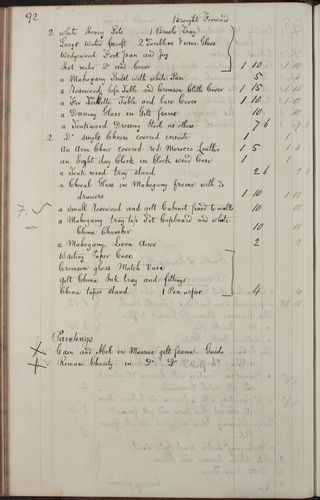 92
Brought Forward
2 White Honey Pots 1 Brush Tray
Large Water 2 Tumblers & wine Glass
Wedgewood Foot pan and Jug
Hot water Do and Cover 1 10
a Mahogany Bidet with white Pan 5
a Rosewood Table and Crimson Cloth Cover 1 15
a Toilette Table and Lace Cover 1 10
a Dressing Glass in Gilt frame 10
a Teakwood Dressing Stool as other 7 6
2 Do single Chairs covered cretonne 1
An Arm Chair covered red Morocco Leather 1 5
An Eight day Clock in black wood Case 1
a Teak wood tray stand 2 6
a Cheval Glass in Mahogany frame with 3
drawers 1 10
a Small Rosewood and gilt Cabinet fixed to wall 10
a Mahogany tray top Pot Cupboard and white
China Chamber 10
a Mahogany Linen Airer 2
Writing Paper Case
Crimson glass Match Vase
gilt China Ink tray and fittings
China taper stand 1 Pen wiper 4
Paintings
Cain and Abel in Massive gilt frame Guido
Roman Charity in Do Do Do